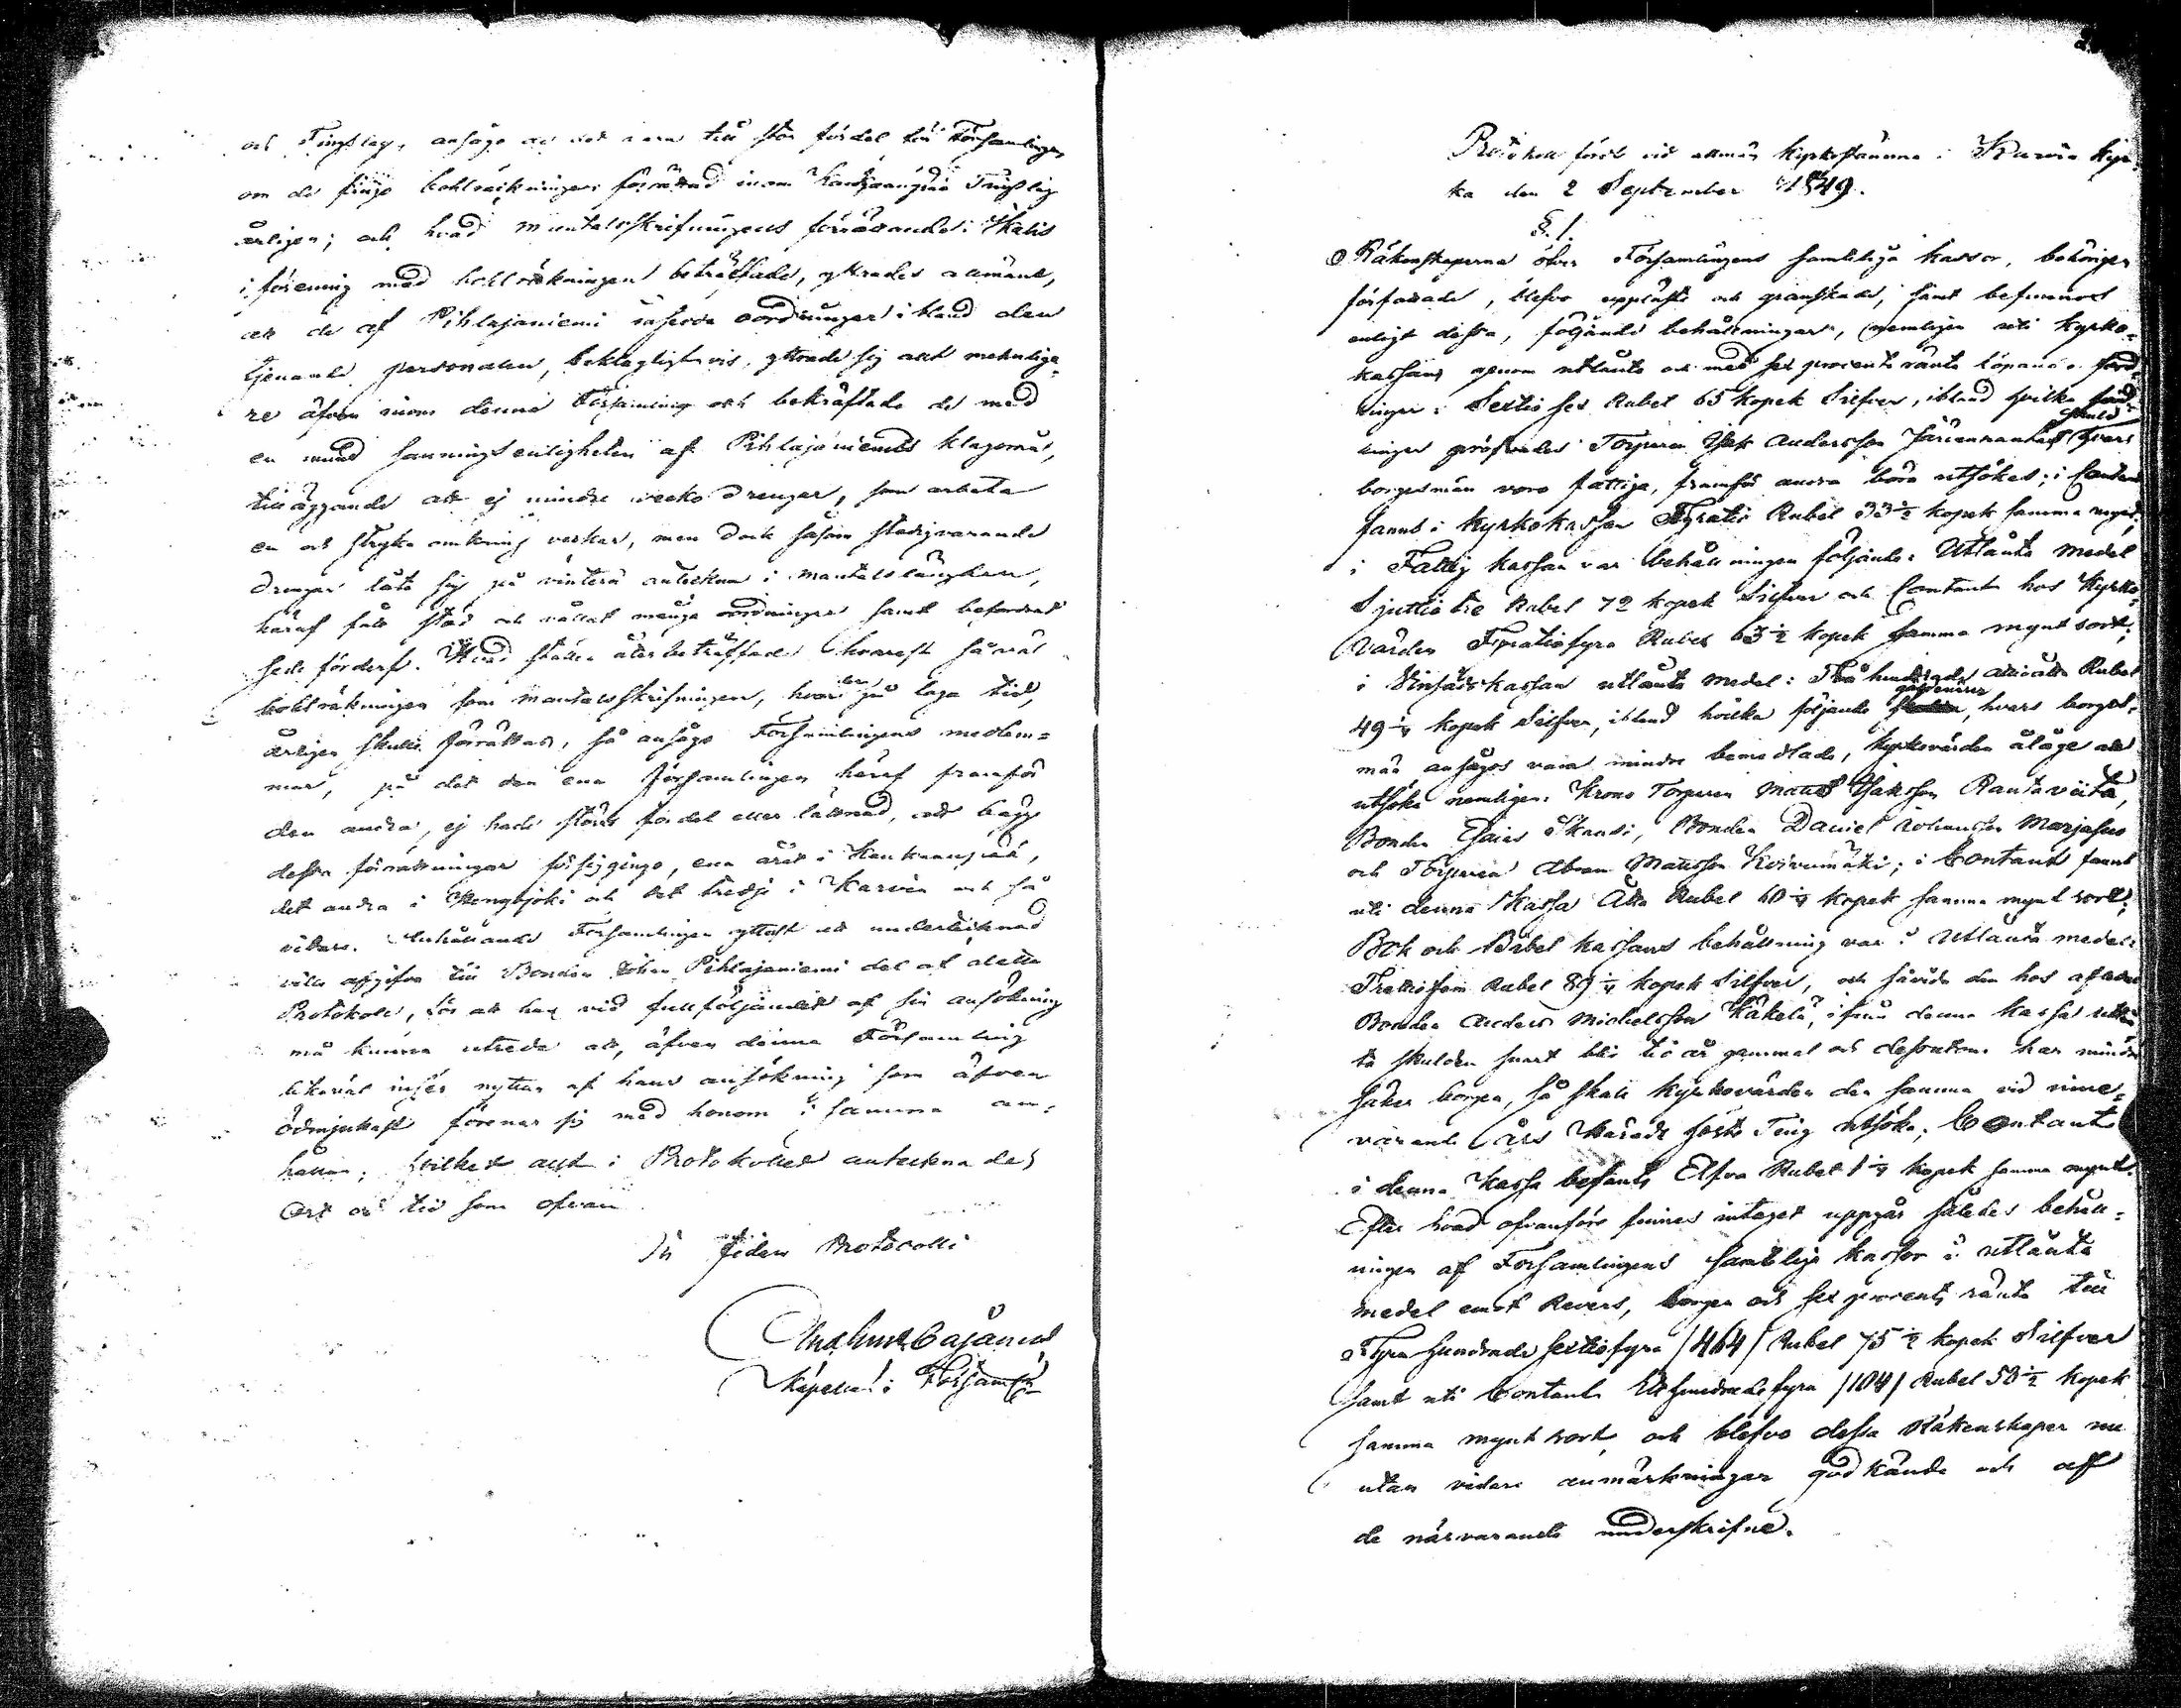 och Tingslag, ansågo att det vore till stor fördel för Församlingen
om de finge bokträkningen förrättad inom Kankaanpää Tingslag
årligen; och hvad mantalsskrifningens förrättande i Karvia
i förening med bokträkningen beträffade, yttrades allmänt,
att de af Pihlajaniemi införda oordningar ibland den
tjenande personalen, beklagligtvis, yttrade sig allt mehnliga=
re äfven inom denna Församling och bekräftade de med
en mund sanningsenligheten af Pihlajaniemis klagomål,
tilläggande att ej mindre veckodrengar, som arbeta
en och stryka omkring veckor, men dock såsom stadigvarande
drengar låta sig på vintern anteckna i mantalslängden,
häraf fått stöd och vållat många oordningar samt befordrat
sedeförderf. Hvad stället åter beträffade hvarest såväl
bokträkningen som mantalsskrifningen, på laga tid,
årligen skulle förrättas, så ansågo Församlingens medlem=
mar, på det den ena Församlingen häraf framför
den andra, ej hade större fördel eller lättnad, att bägge
dessa förrättningar försiggingo, ena året i Kankaanpää,
det andra i Hongojoki och det tredje i Karvia och så
vidare. Anhållande Församlingen yttast att undertecknad
ville afgifva till Bonden Johan Pihlajaniemi del af detta
Protokoll, för att han vid fullföljandet af sin ansökning
må kunna utreda att, äfven denna Församling
likaväl inser nyttan af hans ansökning som äfven
ödmjukast förenar sig med honom i samma an=
hållan; hvilket allt i Protokollet antecknades
Ort och tid som ofvan
In fidem Protocolli
Cajanus
Kapellan i Församl:n
Protokoll fördt vid allmän Kyrkostämma i Karvia Kyr=
ka den 2 September 1849.
§. 1.
Räkenskaperna öfver Församlingens samteliga kassor, behörigen
författade, blefvo upplästa och granskade, samt befunnos
enligt dessa, följande behållningar, nemligen uti Kyrko=
kassans genom utlånta och med sex procents ränta löpande ford=
ringar: Sextio sex Rubel 65 kopek Silfver, ibland hvilka ford=
ringar pröfvades Torparen Isak Andersson Järvenrantas skuld hvars
borgesmän voro fattiga, framför andra böra utsökas; i Contant
fanns i Kyrkokassan Fyratio Rubel 33 ½ kopek samma mynt.
i Fattig kassan var behållningen följande: Utlånta medel
Sjuttiotre Rubel 72 kopek Silfver och Contanta hos Kyrko=
värden Fyratiofyra Rubel 63 ½ kopek samma myntsort;
i Vinsädskassan utlånta medel: Två hundrade Rubel
49 ¼ kopek Silfver, ibland hvilka följande gäldenärer, hvars borges=
män ansågos vara mindre bemedlade, Kyrkovärden ålåge att
utsöka nemligen: Krono Torparen Matts Isaksson Rantaviita,
Bonden Esaias Skantsi, Bonden Daniel Johansson Marjasuo
och Torparen Abram Mattsson Koivumäki; i Contant fanns
uti denna Kassa Åtta Rubel 60 ¼ kopek samma mynt sort;
Bok och Bibel kassans behållning var i utlånta medel:
Trettiofem Rubel 89 ¼ kopek Silfver, och såvida den hos aflidne
Bonden Anders Michelsson Käkelä, ifrån denna kassa utlån=
ta skulden snart blir tio år gammal och dessutom har mindre
säker borgen, så skall Kyrkovärden den samma vid inne=
varande års Härads höste Ting utsöka; Contant
i denna Kassa befants Elfva Rubel 1 ¼ kopek samma mynt.
Efter hvad ofvanföre finnes intaget uppgår således behåll=
ningen af Församlingens samtliga kassor i utlånta
medel emot Revers, borgen och sex procents ränta till
Fyra hundrade sextiofyra /464/ Rubel 75 ½ kopek Silfver
samt uti Contant Etthundrade fyra /104/ Rubel 58 ½ kopek
samma mynt sort, och blefvo dessa Räkenskaper nu
utan vidare anmärkningar godkända och af
de närvarande underskrifne.